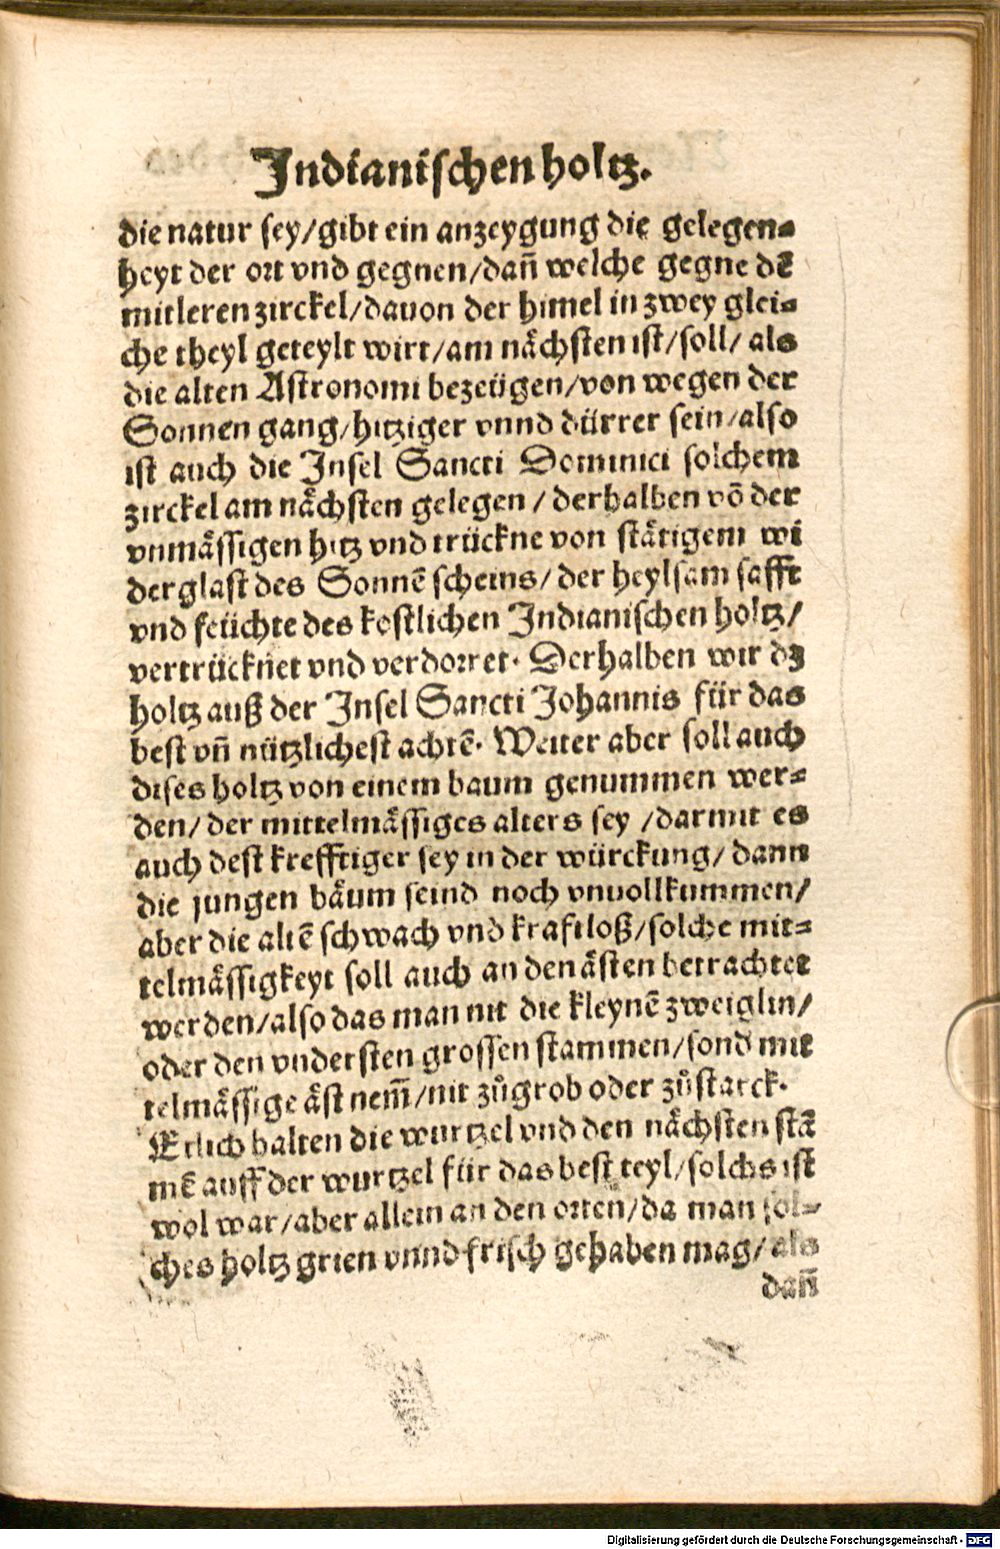 Indianischen holtz.
die natur sey/gibt ein anzeygung die gelegen-
heyt der ort vnd gegnen/dañ welche gegne dẽ
mitleren zirckel/dauon der himel in zwey glei-
che theyl geteylt wirt/am nächsten ist/soll/ als
die alten Astronomi bezeügen/von wegen der
Sonnen gang/hitziger vnnd dürrer sein/also
ist auch die Insel Sancti Dominici solchem
zirckel am nächsten gelegen / derhalben võ der
vnmässigen hitz vnd trückne von stätigem wi
derglast des Sonnẽ scheins/ der heylsam safft
vnd feüchte des kostlichen Indianischen holtz/
vertrücknet vnd verdorret. Derhalben wir dz
holtz auß der Insel Sancti Johannis für das
best vñ nützlichest achtẽ. Weiter aber soll auch
dises holtz von einem baum genummen wer-
den/ der mittelmässiges alters sey /darmit es
auch dest krefftiger sey in der würckung/ dann
die jungen bäum seind noch vnuollkummen/
aber die altẽ schwach vnd krafftloß/solche mit-
telmässigkeyt soll auch an den ästen betrachtet
werden/also das man nit die kleynẽ zweiglin/
oder den vndersten grossen stammen/sond mit
telmässige äst nem̃/nit zůgrob oder zůstarck.
Etlich halten die wurtzel vnd den nächsten stã
mẽ auff der wurtzel für das best teyl/solchs ist
wol war/aber allein an den orten/da man sol-
ches holtz grien vnnd frisch gehaben mag/ als
dañ
Digitalisierung gefördert durch die Deutsche Forschungsgemeinschaft - DFG